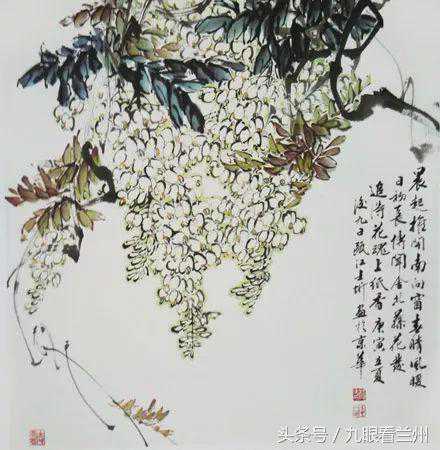 晨起推開南向窗春晴風暖
日初長傳聞舍北藤花發
追花魂上紙香庚寅立夏
後九日江畫於京華
头条号 / 九眼看兰州